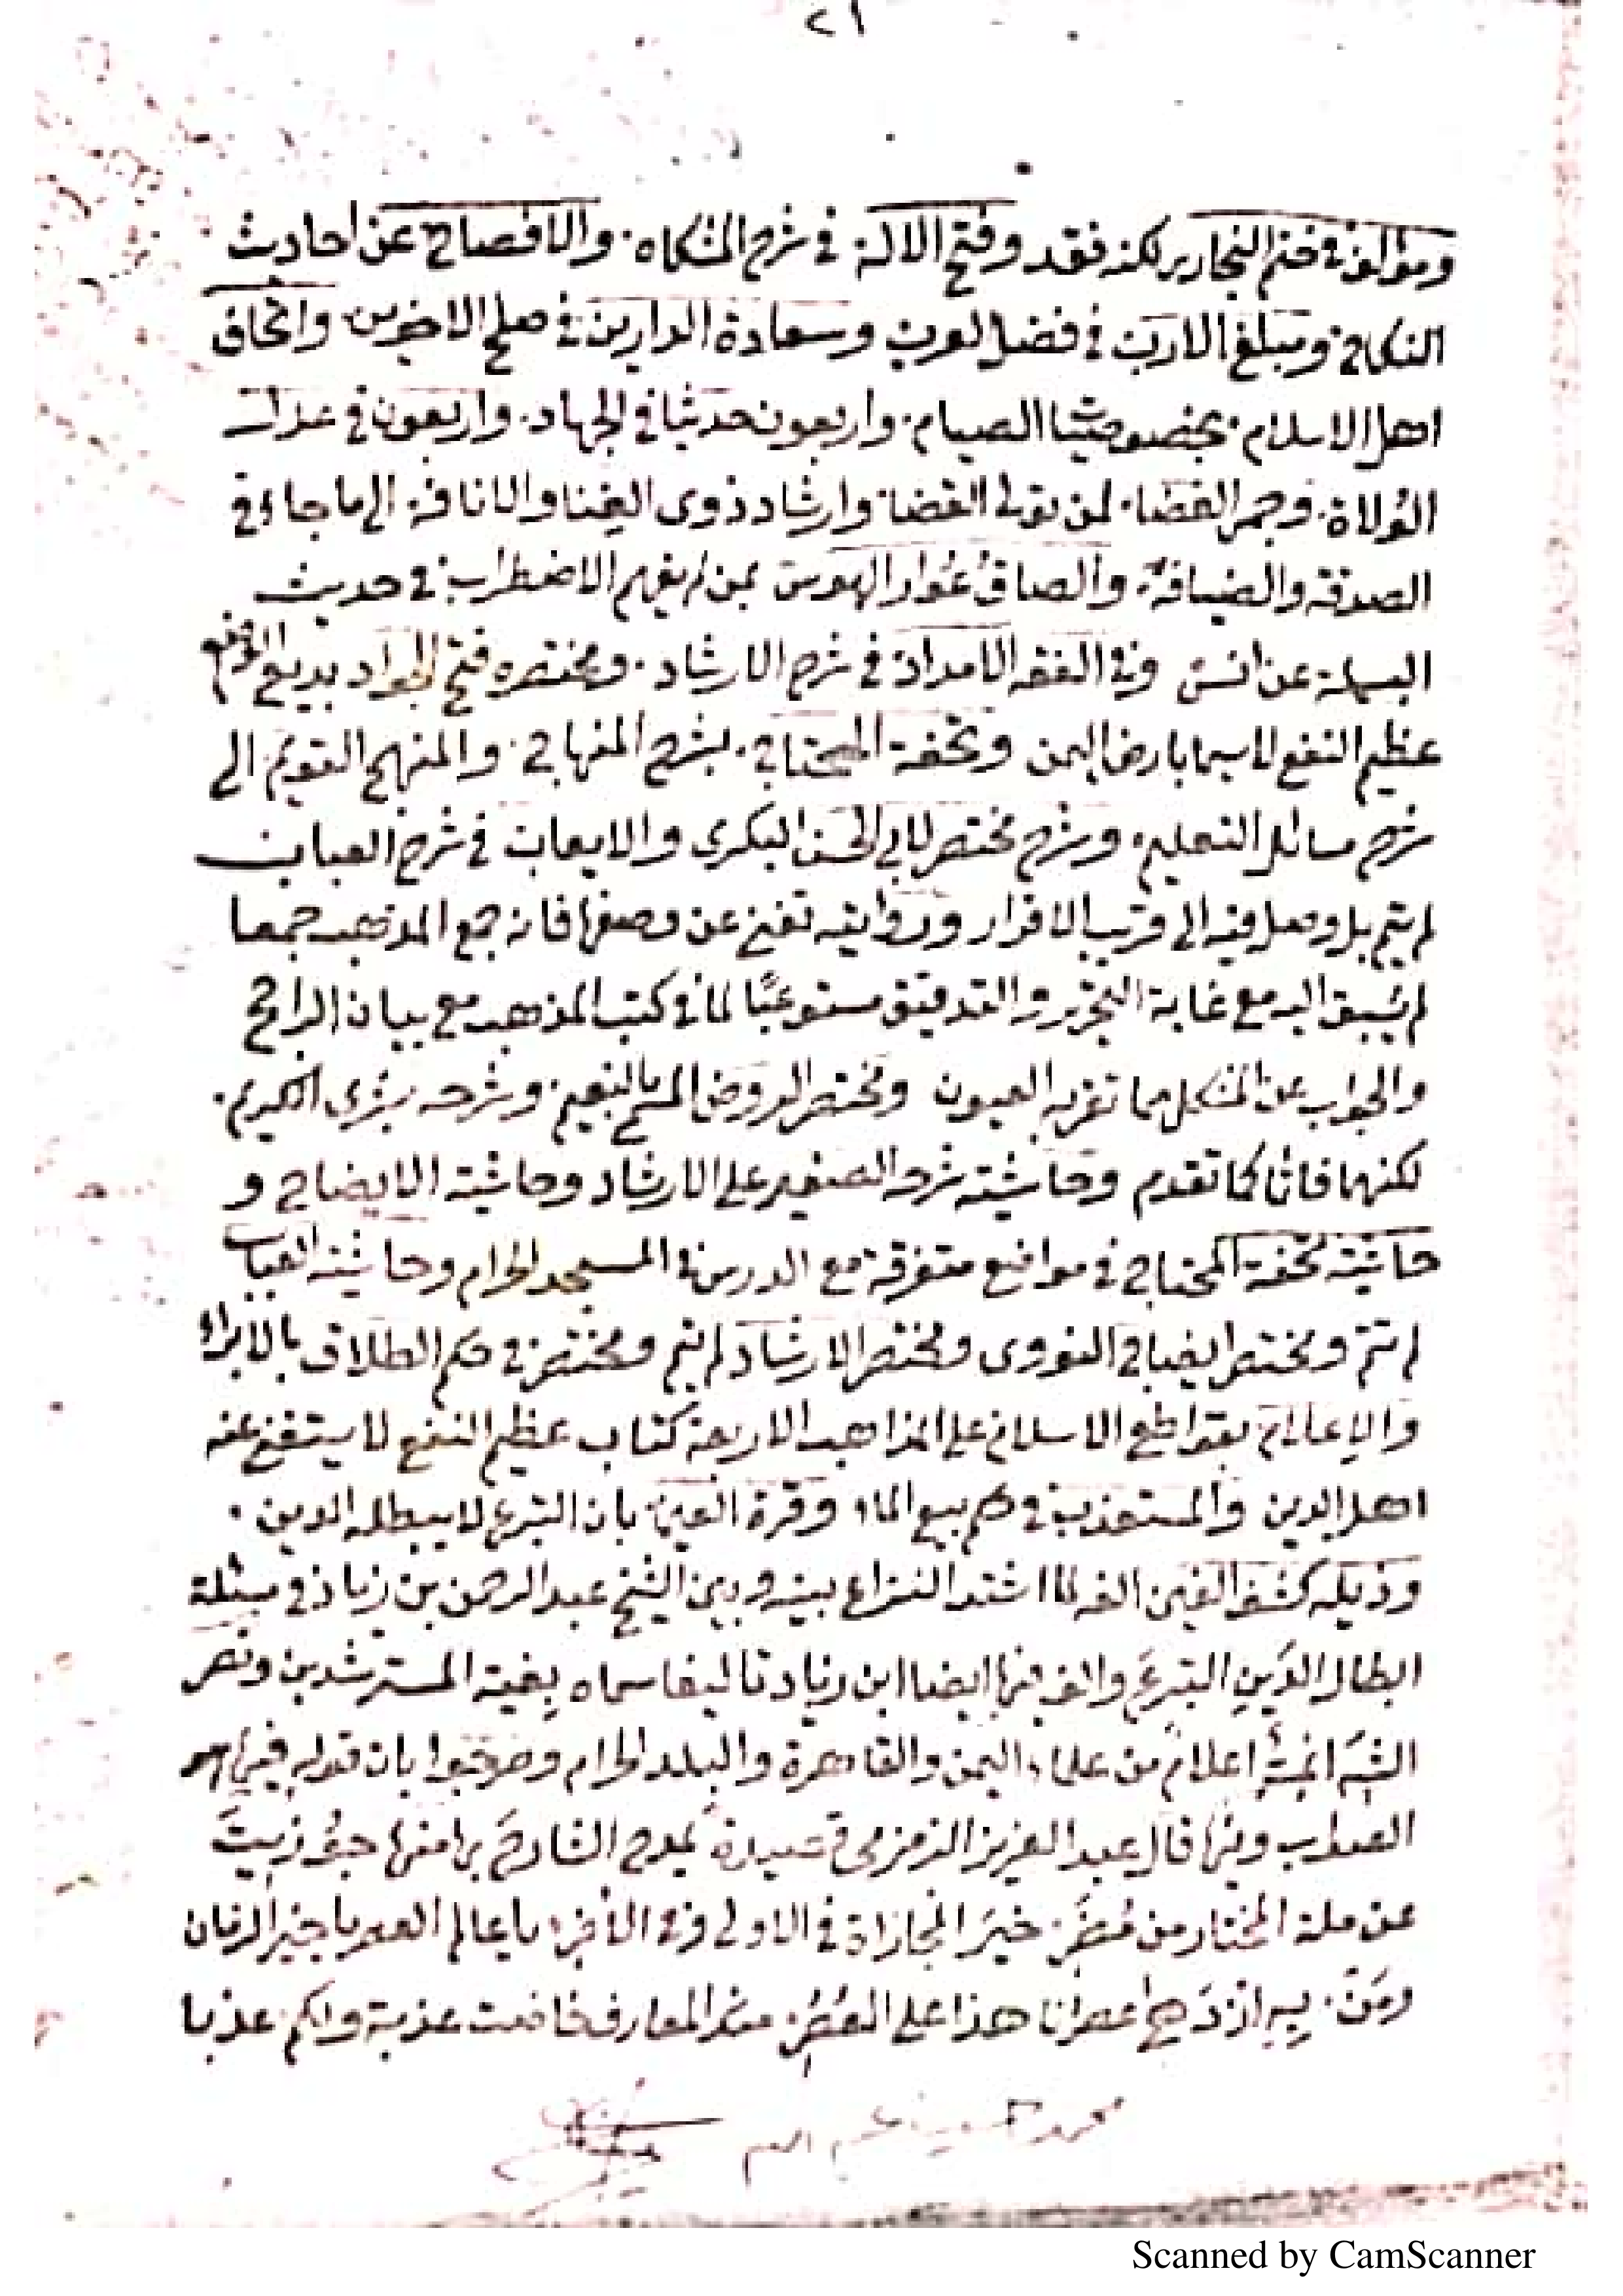 ٢١
ومؤلف في ختم البخاري لكنه فقد وفتح الاله في شرح المشكاه. والافصاح عن احاديث
النكاح ومبلغ الارب في فضل العرب وسعادة الدارين في صلح الاخوين واتحاف
اهل الاسلام. بخصوصيات الصيام. واربعون حديثا في الجهاد. واربعون في عدل
الولاة. وجمر الغضا. لمن تولى القضا وارشاد ذوى الغنا والانافه. الى ما جاء في
الصدقة والضيافة. والصاق عوار الهوس بمن لم يفهم الاضطراب في حديث
البسملة عن انس وفي الفقه الامداد في شرح الارشاد. ومختصره فتح الجواد بديع الوضع
عظيم النفع لا سيما بارض اليمن وتحفة المحتاج. بشرح المنهاج. والمنهج القويم الى
شرح مسائل التعليم. وشرح مختصر لابي الحسن البكري والايعاب في شرح العباب
لم يتم بل وصل فيه الى قريب الاقرار ورؤيته تغني عن وصفها فانه جمع المذهب جمعا
لم يسبق اليه مع غاية التحرير والتدقيق مستوعبًا لما في كتب المذهب مع بيان الراجح
والجواب عن المشكل مما تقر به العيون ومختصر الروض المسمى بالنعيم. وشرحه بشرى الكريم.
لكنهما فاتا كما تقدم وحاشية شرحه الصغير على الارشاد وحاشية الايضاح و
حاشية تحفة المحتاج في مواضع متفرقة مع الدرس في المسجد الحرام وحاشية العباب
لم تتم ومختصر ايضاح النووى ومختصر الارشاد لم يتم ومختصر في حكم الطلاق بالابراء
والاعلام بقواطع الاسلام على المذاهب الاربعة كتاب عظيم النفع لا يستغنى عنه
اهل الدين والمستعذب في حكم بيع الماء وقرة العين بان التبرع لا يبطله الدين.
وذيله كشف الغين الفه لما اشتد النزاع بينه وبين الشيخ عبد الرحمن بن زياد في مسئلة
ابطال الدَينِ التبرعَ والف فيها ايضا ابن زياد تاليفا سماه بغية المسترشدين ونصر
الشيخ ائمة اعلام من علماء اليمن والقاهرة والبلد الحرام وصرحوا بان قوله فيها هو
الصواب وفيها قال عبد العزيز الزمزمي قصيدة يمدح الشارح بها منها جوزيت
عن ملة المختار من مضر. خير المجازاة في الاولى وفي الاخر يا عالم العصر يا خير الزمان
ومن. به ازدهى عصرنا هذا على العصر. منك المعارف فاضت عذبة ولكم عذبا
Scanned by CamScanner